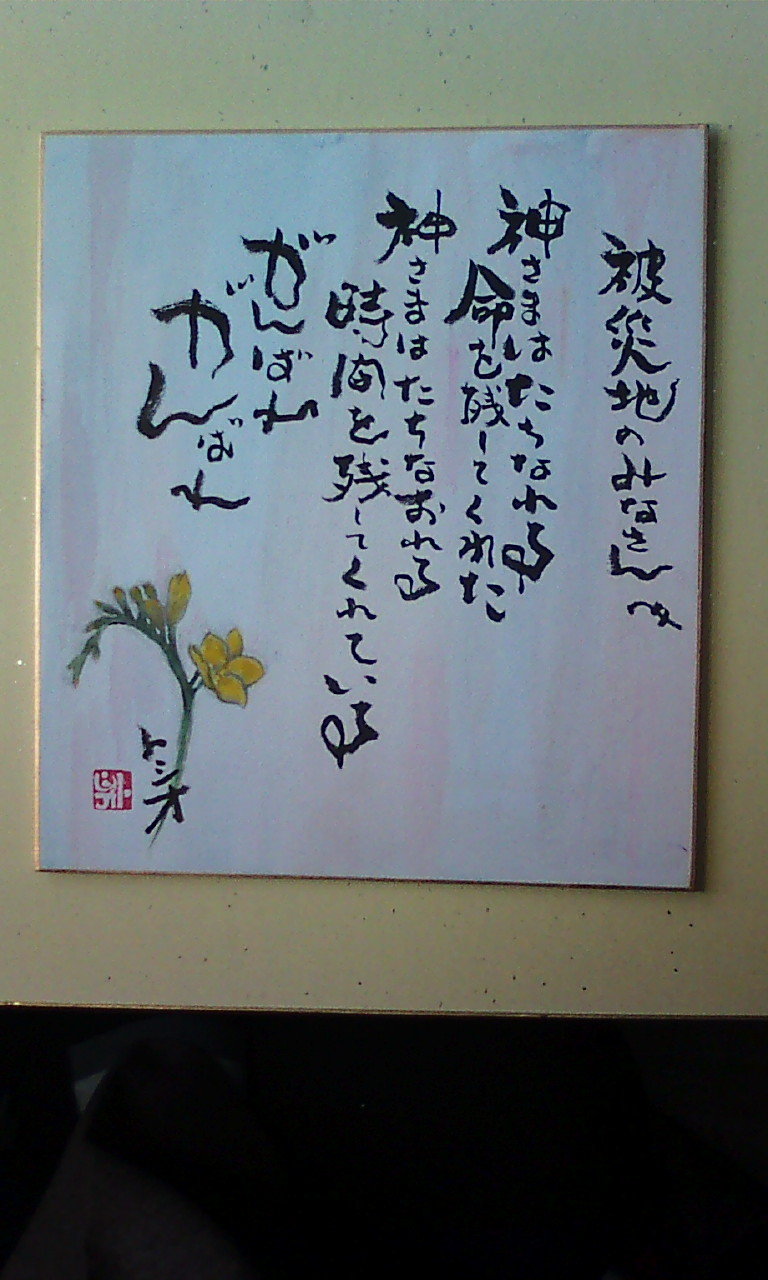 被災地のみなさんへ
神さまはたちなれる
命を残してくれた
神さまはたちなおれる
時間を残してくれている
がんばれ
がんばれ
トシオ